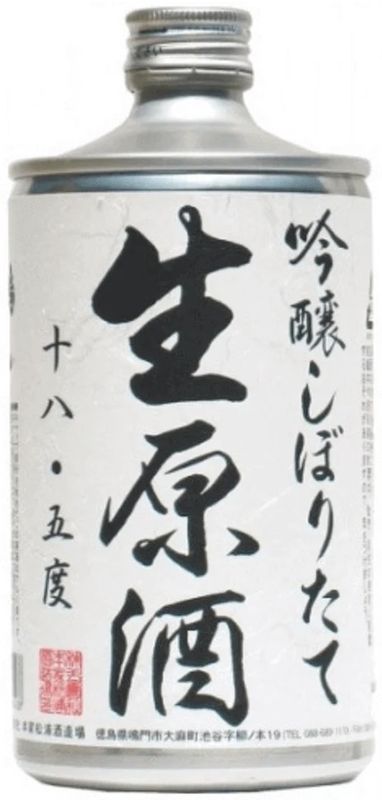 吟醸しぼりたて
生原酒
十八・五度
本家松浦酒造場 徳島県鳴門市大麻町池谷字柳ノ本19